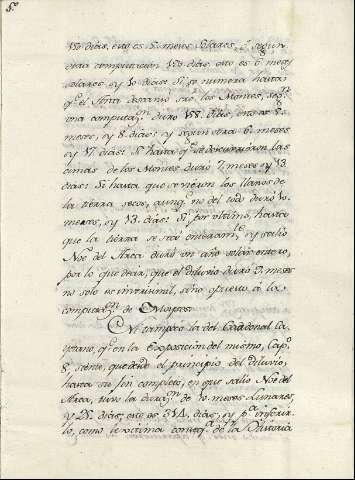 150 dias, esto es 5 meses solares, ò segun
otra computacion 190 dias, esto es 6 meses
solares, y 10 dias: Si se numera hasta
q.e el Arca descanso sre los Montes, segn
una computazn. duro 158 dias, esto es 5
meses, y 8 dias; y segun otra 6 meses
y 17 dias: Si hasta q.e se descubrieron las
cimas de los Montes duró 7 meses y 13
dias: Si hasta que se vieron los llanos de
la tierra secos, aunq.e no del todo duró 10
meses, y 13 dias: Si por ultimo, hasta
que la tierra se secó enteramte, y salio
Noe del Arca duró un año solar entero,
por lo que decir, que el diluvio duró 9 meses
no solo es inverisimil, sino opuesto á la
computazn. de Moyses.
Ni tampoco la del Cardenal Ca
yetano, q.e en la Exposicion del mismo, Cap.o
8. siente, que desde el principio del diluvio,
hasta su fin completo, en que salio Noe del
Arca, tuvo la durazn. de 10 meses Lunares,
y 25 dias; esto es 314 dias, y p.a inferir
lo, como lexitima conseqa. de la Historia